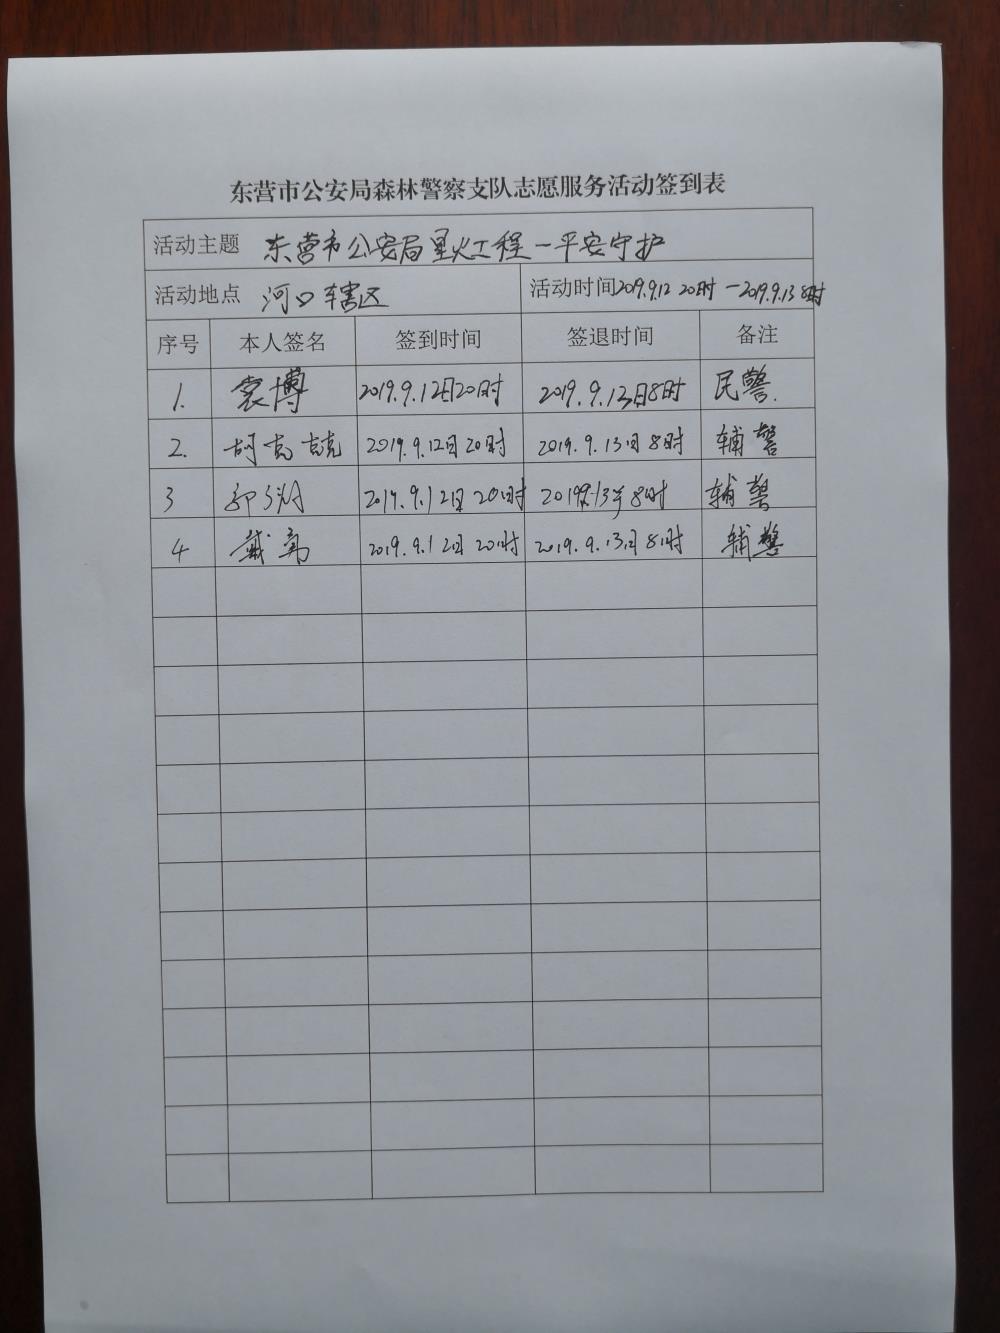 东营市公安局森林警察支队志愿服务活动签到表
活动主题 东营市公安局星火工程一平安守护
活动地点 河口辖区 活动时间2019.9.12 20时一2019.9.13 8时
序号 本人签名 签到时间 签退时间 备注
1. 袁博 2019.9.12日20时 2019.9.13日8时 民警.
2. 2019.9.12日20时 2019.9.13日8时 辅警
3 2019.9.12日20时 8时 辅警
4 戴亮 2019.9.12日20时 2019.9.13日8时 辅警